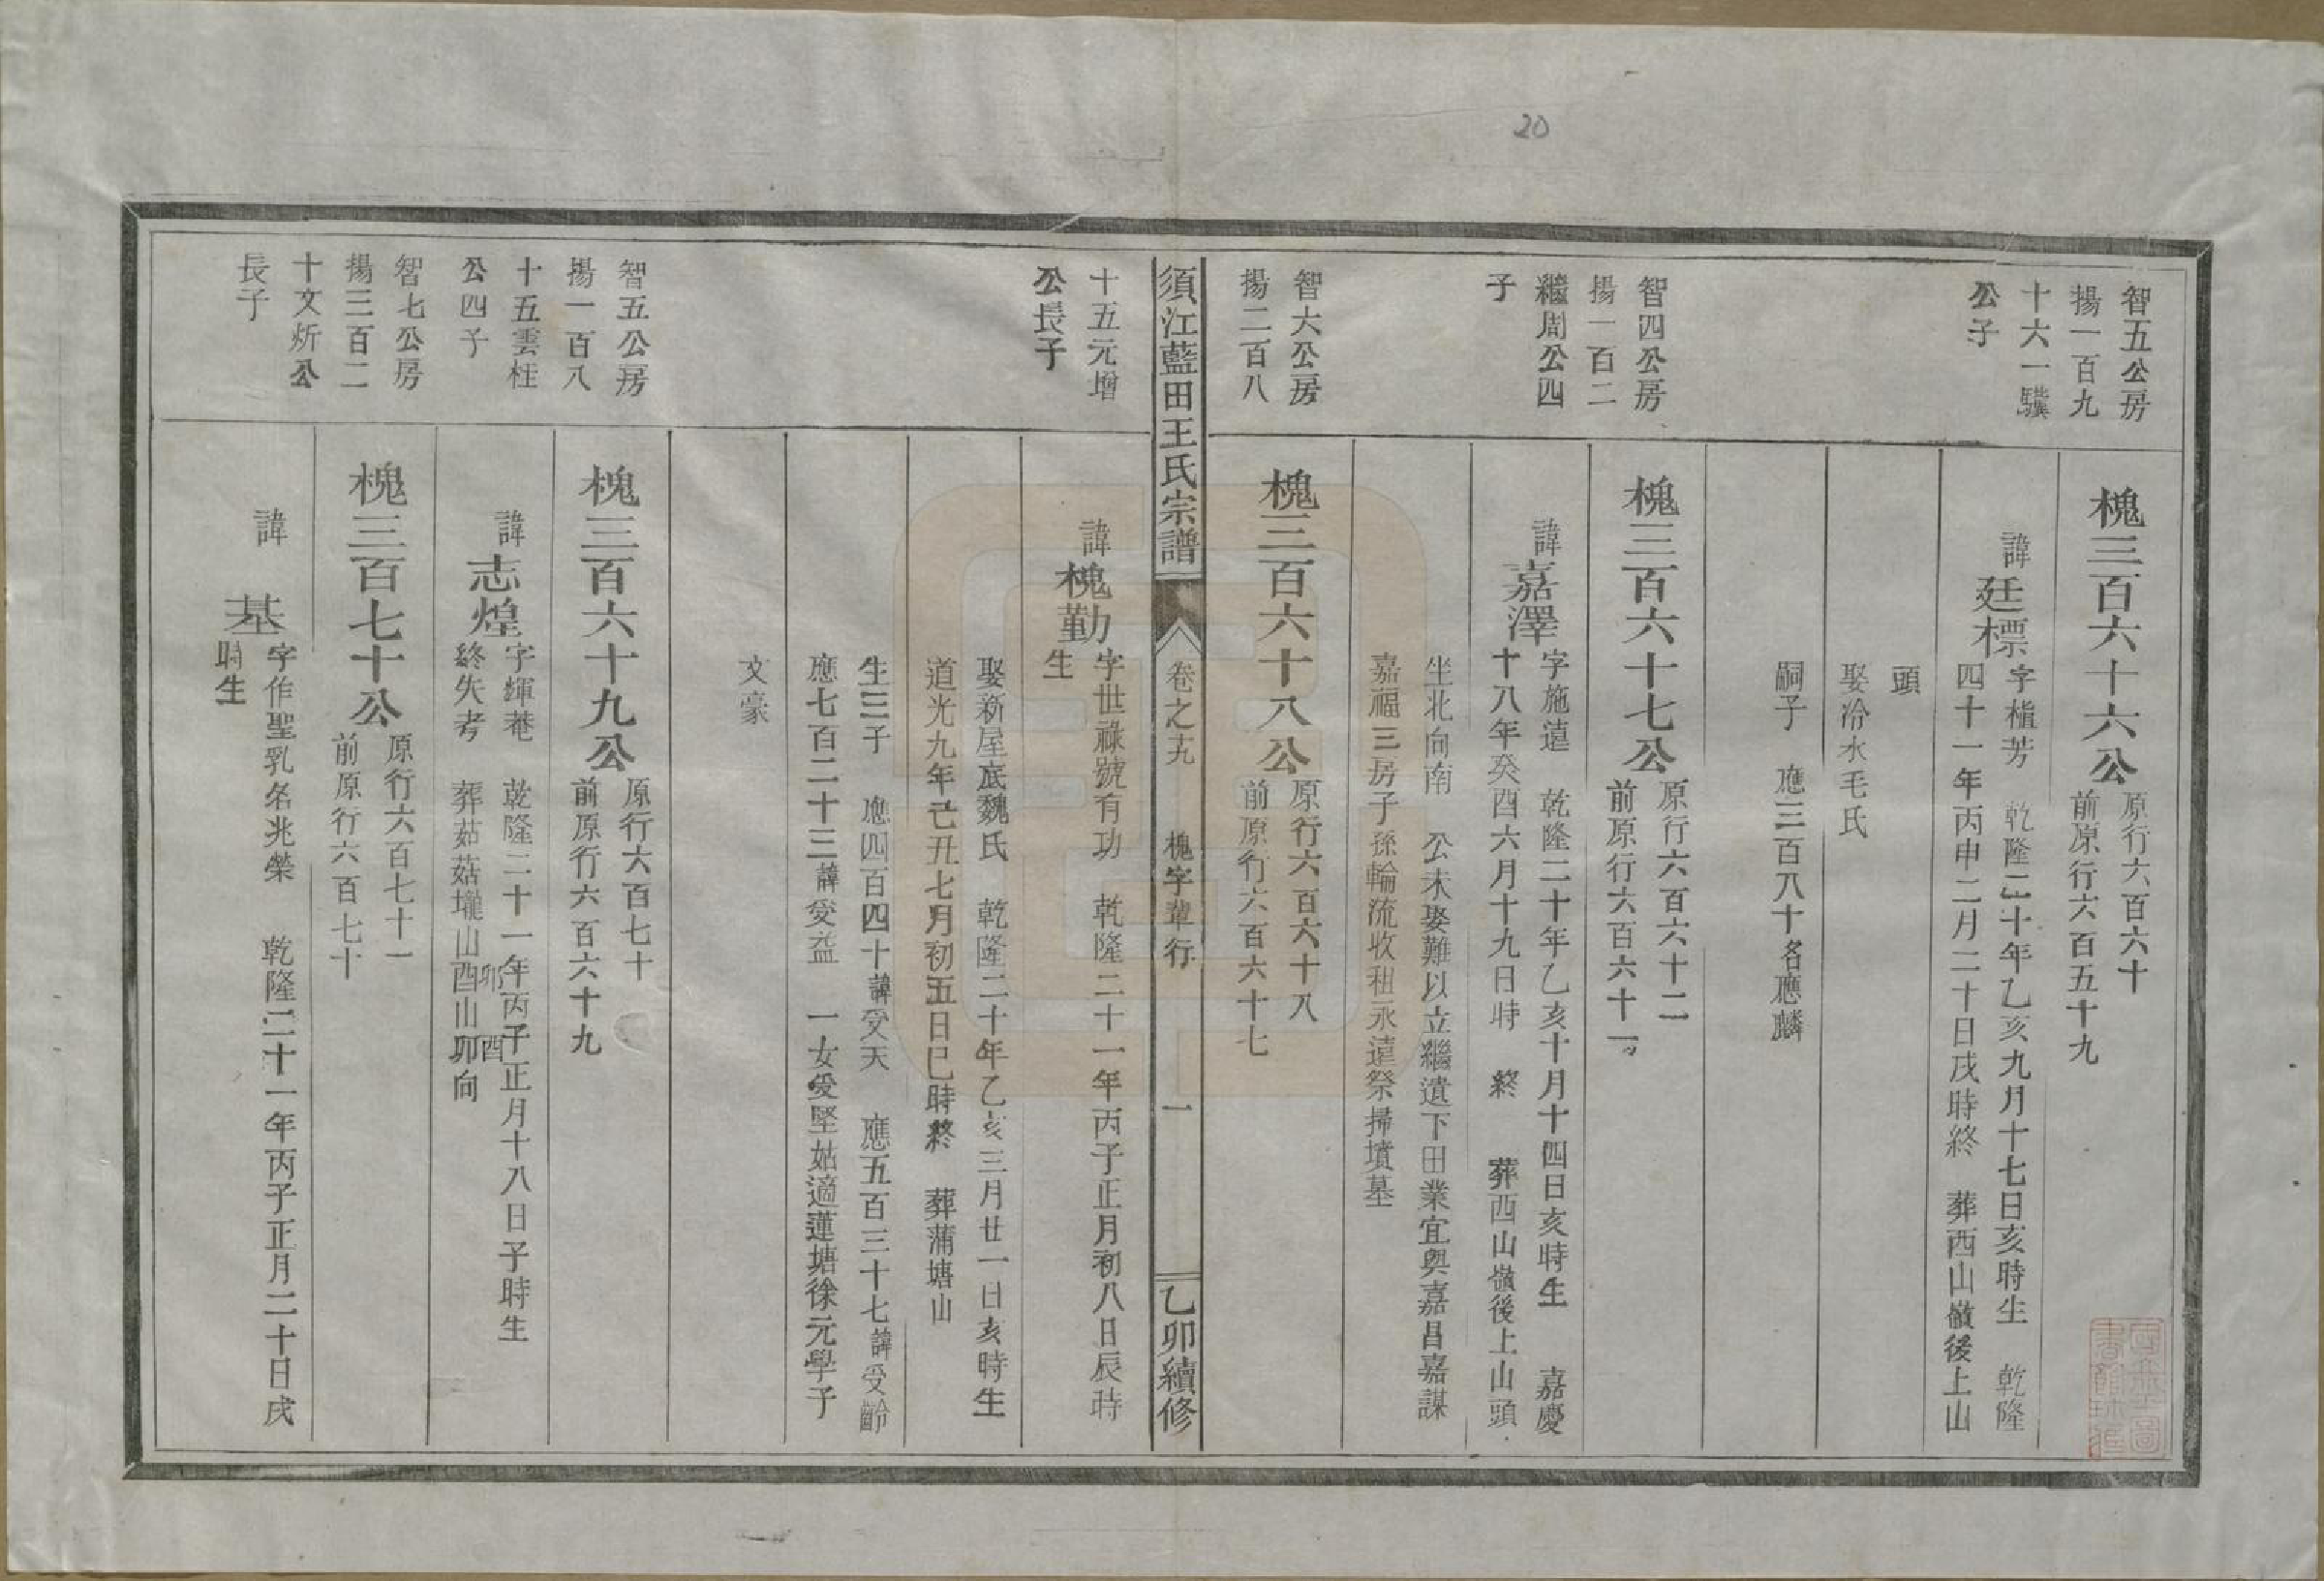 20
智五公房
揚一百九
十六一驥
公子
槐三百六十六公
原行六百六十
前原行六百五十九
諱廷標
字植芳　乾隆二十年乙亥九月十七日亥時生　乾隆
四十一年丙申二月二十日戌時終　葬西山嶺後上山
頭
娶冷水毛氏
嗣子　應三百八十名應麟
智四公房
揚一百二
繼周公四
子
槐三百六十七公
原行六百六十二
前原行六百六十一
諱嘉澤
字施遠　乾隆二十年乙亥十月十四日亥時生　嘉慶
十八年癸酉六月十九日時　終　葬西山嶺後上山頭
坐北向南　公未娶難以立繼遺下田業宜與嘉昌嘉謀
嘉福三房子孫輪流收租永遠祭掃墳墓
智大公房
揚二百八
槐三百六十八公
原行六百六十八
前原行六百六十七
須江藍田王氏宗譜
卷之十九
槐字輩行
一
乙卯續修
十五元增
公長子
諱槐勤
字世祿號有功　乾隆二十一年丙子正月初八日辰時
生
娶新屋底魏氏　乾隆二十年乙亥三月廿一日亥時生
道光九年己丑七月初五日巳時終　葬蒲塘山
生三子　應四百四十諱受天　應五百三十七諱受齡
應七百二十三諱受益　一女愛堅姑適蓮塘徐元學子
文豪
智五公房
揚一百八
十五雲柱
公四子
槐三百六十九公
原行六百七十
前原行六百六十九
諱志煌
字輝菴　乾隆二十一年丙子正月十八日子時生
終失考　葬菇菇壠山酉山卯向
卯　酉
智七公房
揚三百二
十文炘公
長子
槐三百七十公
原行六百七十一
前原行六百七十
諱　基
字作聖乳名兆榮　乾隆二十一年丙子正月二十日戌
時生